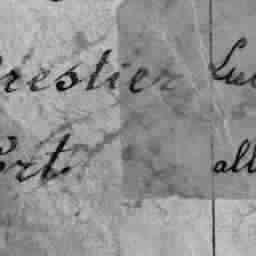 restier Luc
ort. all